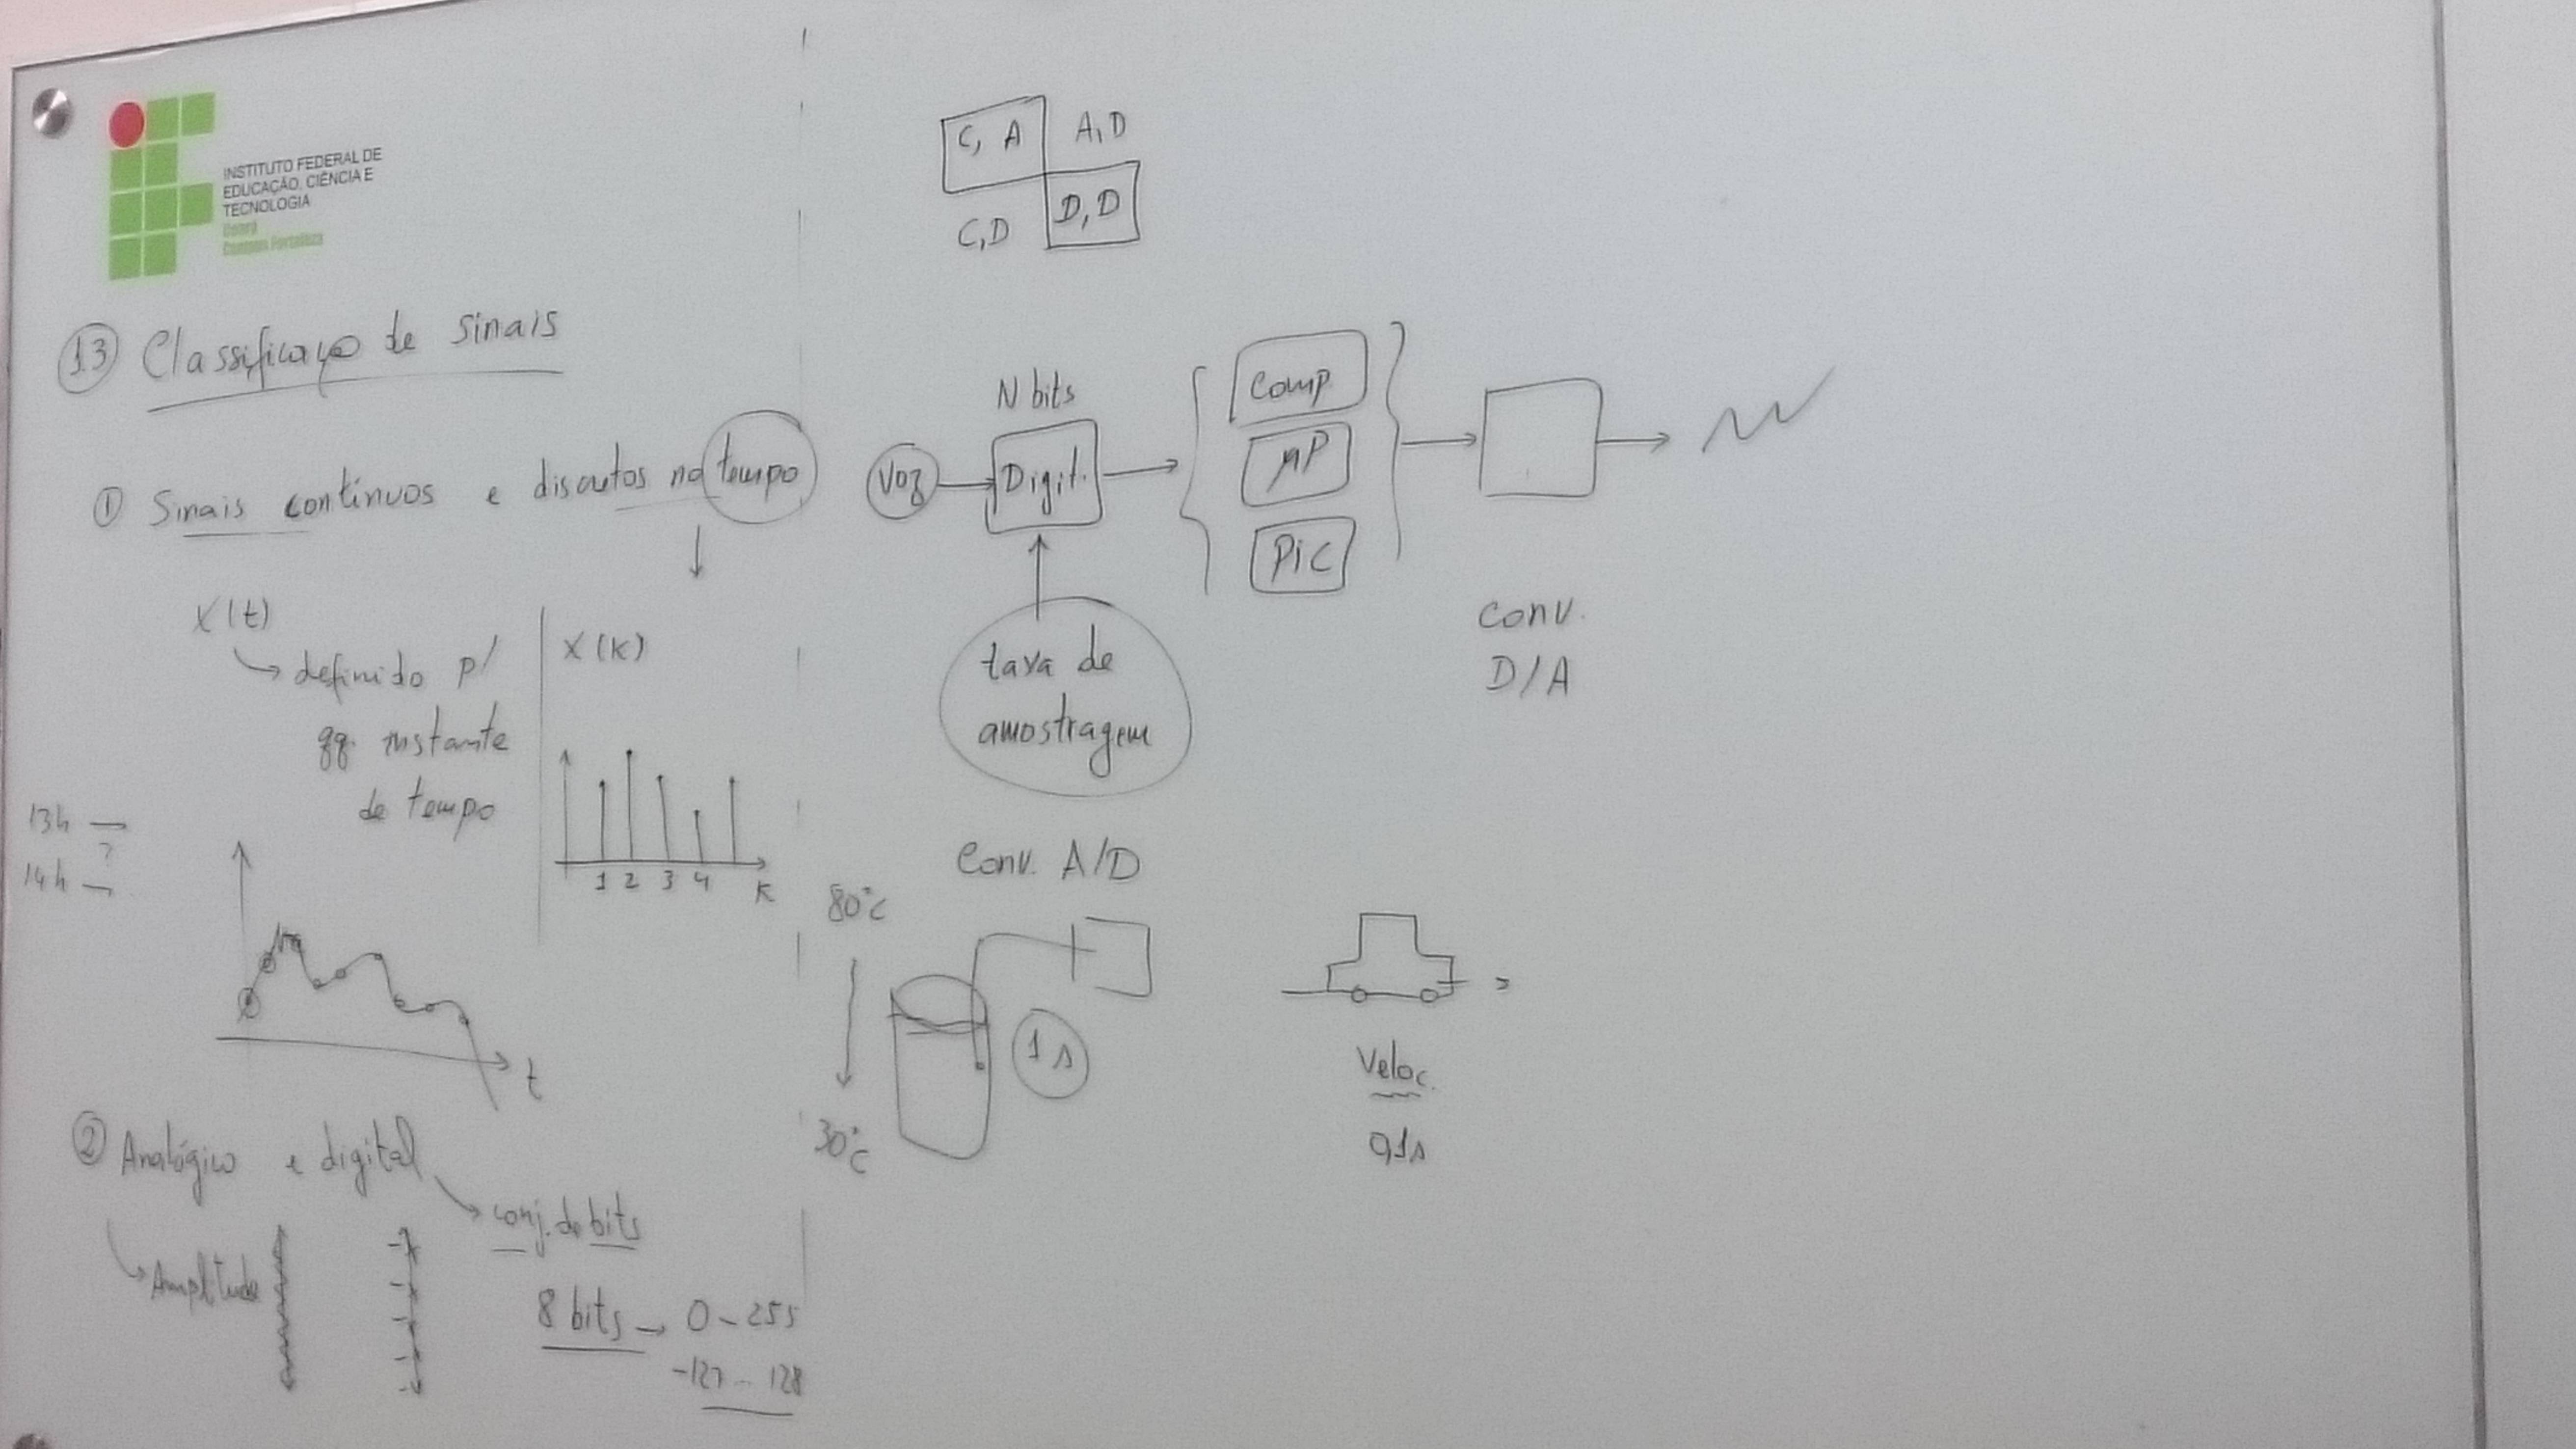 INSTITUTO FEDERAL DE
EDUCAÇÃO, CIÊNCIA E
TECNOLOGIA
Ceará
Campus Fortaleza
1.3 Classificação de sinais
① Sinais contínuos e discretos no tempo
X(t)
definido p/
qq. instante
de tempo
X(k)
1 2 3 4 k
13h —
?
14h —
t
② Analógico e digital
conj. de bits
Amplitude
8 bits → 0 - 255
-127 - 128
C, A
A, D
C, D
D, D
N bits
Voz
Digit.
Comp.
μP
PIC
taxa de
amostragem
Conv.
D/A
Conv. A/D
80°C
30°C
1 s
Veloc.
0,1s